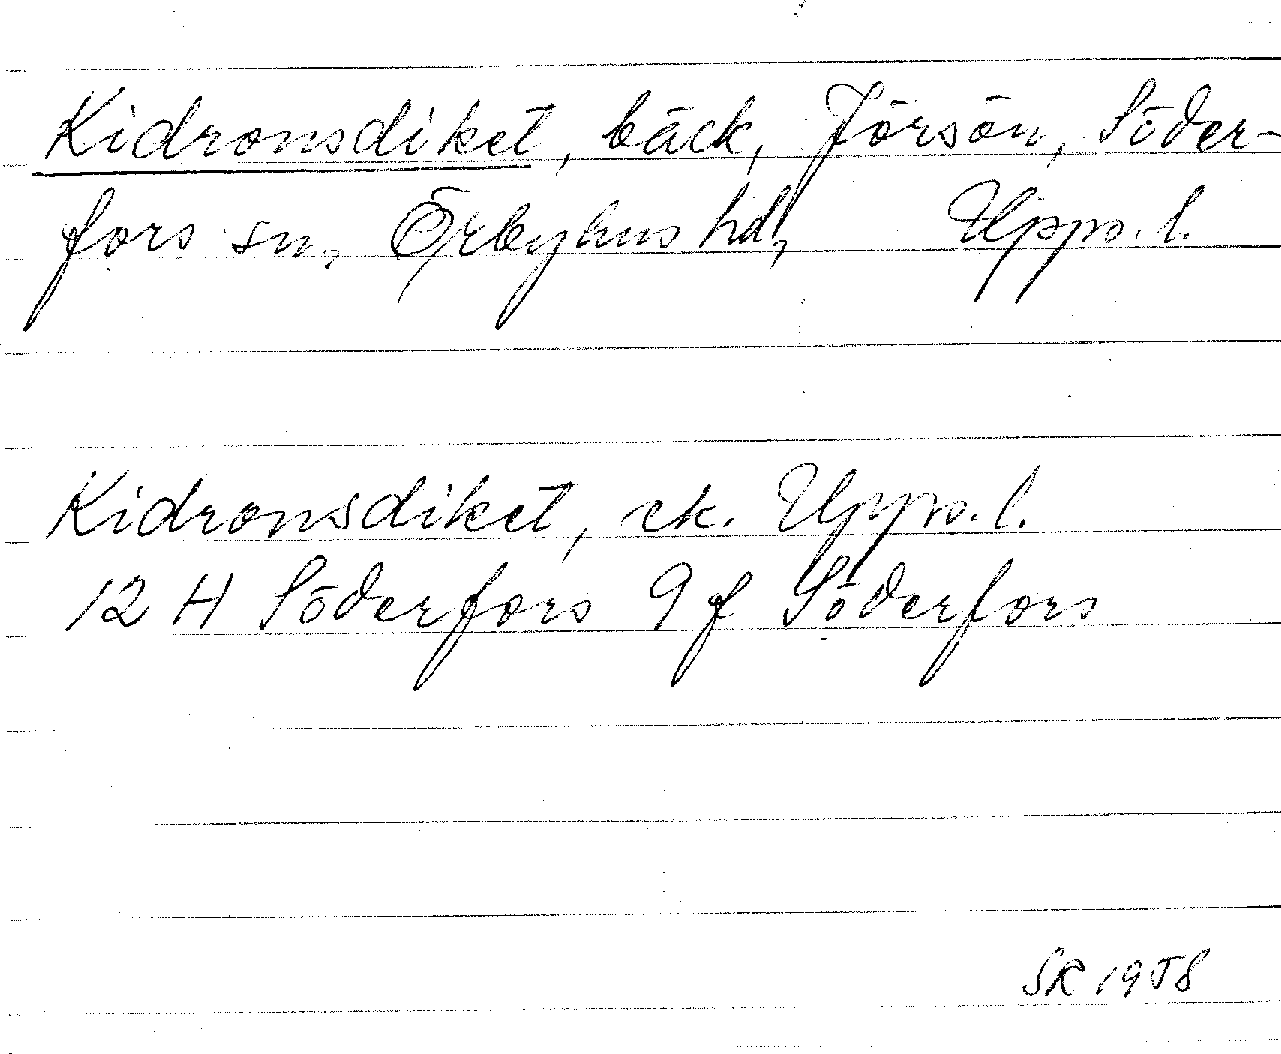 Kidronsdiket, bäck, Jörsön, Söder-
fors sn, Örbyhus hd, Upps. l.
Kidronsdiket, ek. Upps. l.
12 H Söderfors 9 f Söderfors
SR 1958